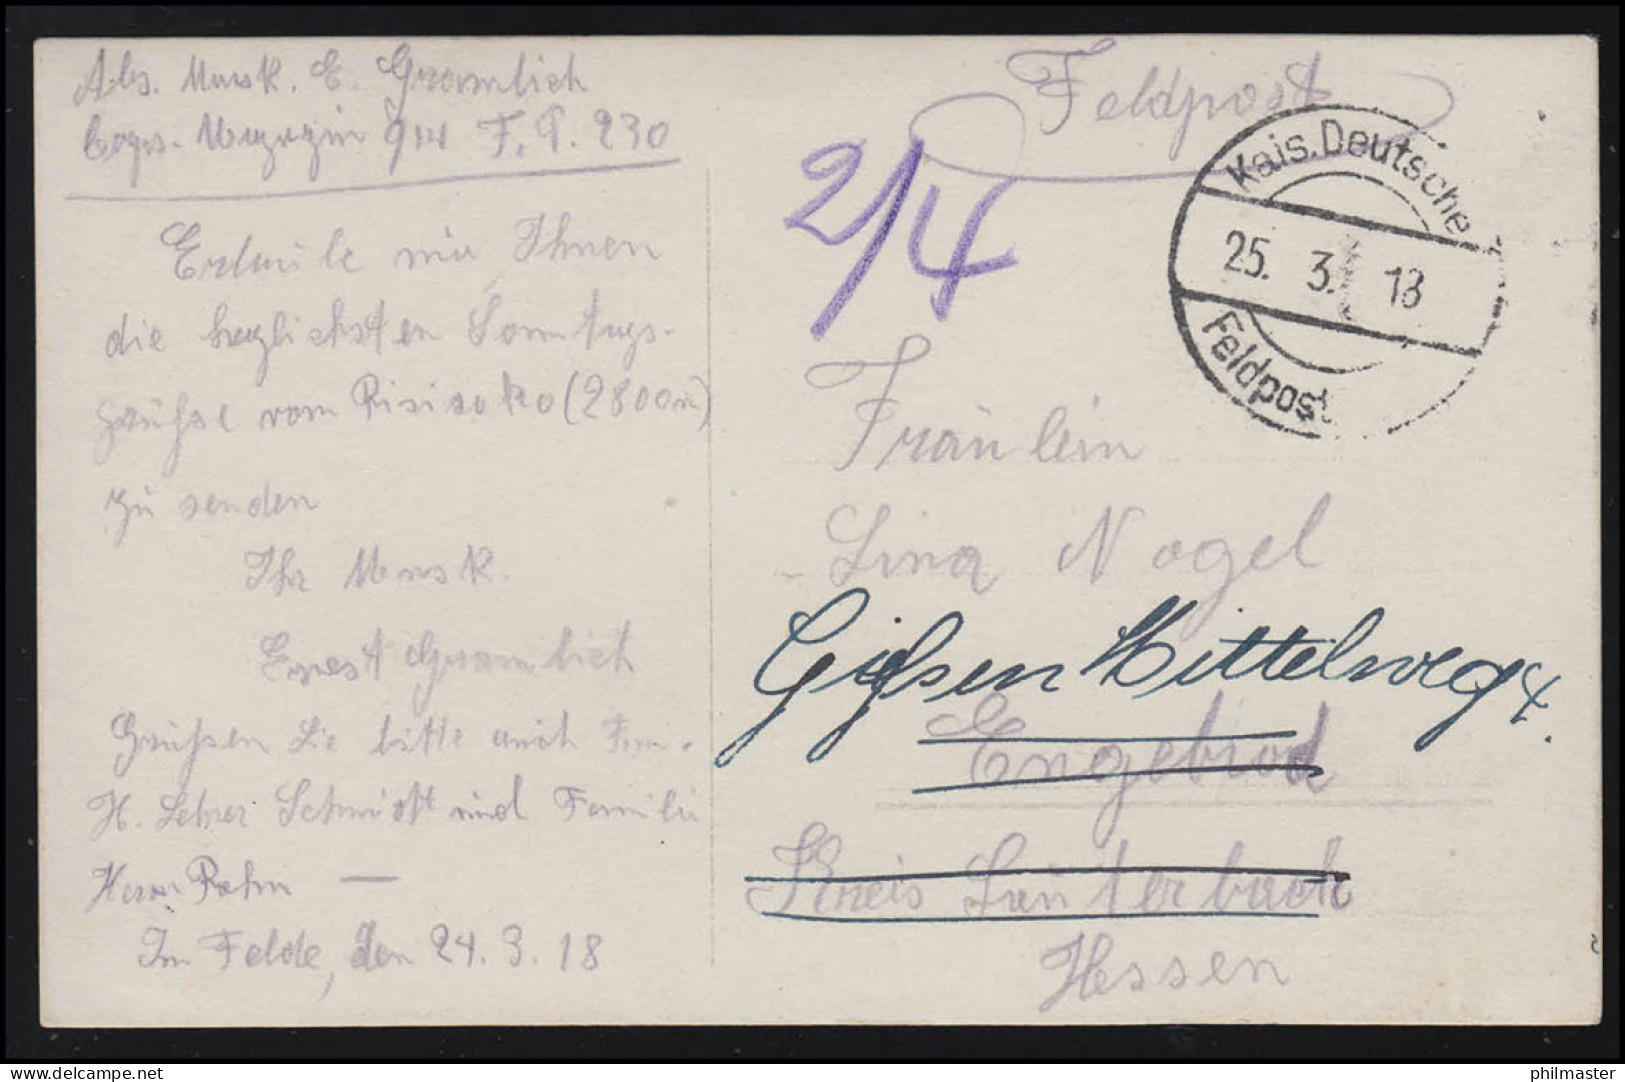 Abs. Musk. E. Gramlich
Corps-Magazin F.P. 230
Erlaube mir Ihnen
die herzlichsten Sonntags-
grüßse vom Pisisoko (2800m)
zu senden
Ihr Musk.
Ernst Gramlich
Grüßsen Sie bitte auch Fam.
H. Lehrer Schmidt und Familie
Herrn Rahn —
Im Felde, den 24.3.18
Feldpost
2/4
Kais. Deutsche
25. 3. 18
Feldpost
Fräulein
Lina Nagel
Gießsen Mittelweg 4.
Engelrod
Kreis Lauterbach
Hessen
delcampe.net
philmaster